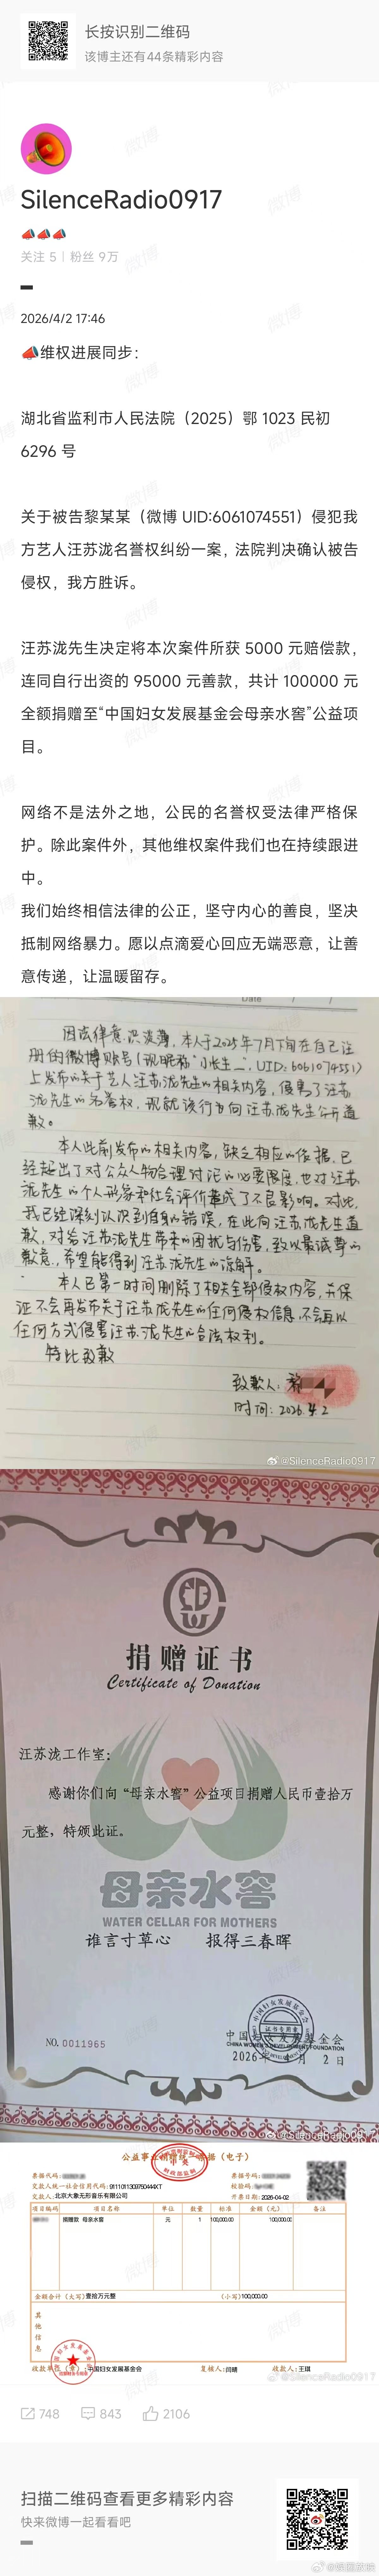 长按识别二维码
该博主还有44条精彩内容
SilenceRadio0917
📣📣📣
关注 5 | 粉丝 9万
2026/4/2 17:46
📣维权进展同步：
湖北省监利市人民法院（2025）鄂 1023 民初
6296 号
关于被告黎某某（微博 UID:6061074551）侵犯我
方艺人汪苏泷名誉权纠纷一案，法院判决确认被告
侵权，我方胜诉。
汪苏泷先生决定将本次案件所获 5000 元赔偿款，
连同自行出资的 95000 元善款，共计 100000 元
全额捐赠至“中国妇女发展基金会母亲水窖”公益项
目。
网络不是法外之地，公民的名誉权受法律严格保
护。除此案件外，其他维权案件我们也在持续跟进
中。
我们始终相信法律的公正，坚守内心的善良，坚决
抵制网络暴力。愿以点滴爱心回应无端恶意，让善
意传递，让温暖留存。
Date
因法律意识淡薄，本人于2025年7月下旬在自己注
册的微博账号（现昵称"小长生二"，UID：6061074551）
上发布的关于艺人汪苏泷先生的相关内容，侵害了汪苏
泷先生的名誉权，现就该行为向汪苏泷先生公开道
歉。
本人此前发布的相关内容，缺乏相应的依据，已
经超出了对公众人物合理讨论的必要限度，也对汪苏
泷先生的个人形象和社会评价造成了不良影响。对此，
我已经深刻认识到自身的错误，在此向汪苏泷先生道
歉，对给汪苏泷先生带来的困扰与伤害，致以最诚挚的
歉意，希望能得到汪苏泷先生的谅解。
本人已第一时间删除了相关全部侵权内容，并保
证不会再发布关于汪苏泷先生的任何侵权信息，不会再以
任何方式侵害汪苏泷先生的合法权利。
特此致歉
致歉人：黎
时间：2026.4.2
@SilenceRadio0917
捐赠证书
Certificate of Donation
汪苏泷工作室：
感谢你们向“母亲水窖”公益项目捐赠人民币壹拾万
元整，特颁此证。
母亲水窖
WATER CELLAR FOR MOTHERS
谁言寸草心 报得三春晖
NO. 0011965
中国妇女发展基金会
CHINA WOMEN'S DEVELOPMENT FOUNDATION
2026年 月 2日
@SilenceRadio0917
公益事业捐赠统一票据（电子）
票据代码： 票据号码：
交款人统一社会信用代码：91110113097504444XT 校验码：
交款人：北京大象无形音乐有限公司 开票日期：2026-04-02
项目编码 项目名称 单位 数量 标准 金额（元） 备注
捐赠款 母亲水窖 元 1 100,000.00 100,000.00
金额合计（大写）壹拾万元整 （小写）100,000.00
其他信息
收款单位（章）：中国妇女发展基金会 复核人：闫晴 收款人：王琪
@SilenceRadio0917
748 843 2106
扫描二维码查看更多精彩内容
快来微博一起看看吧